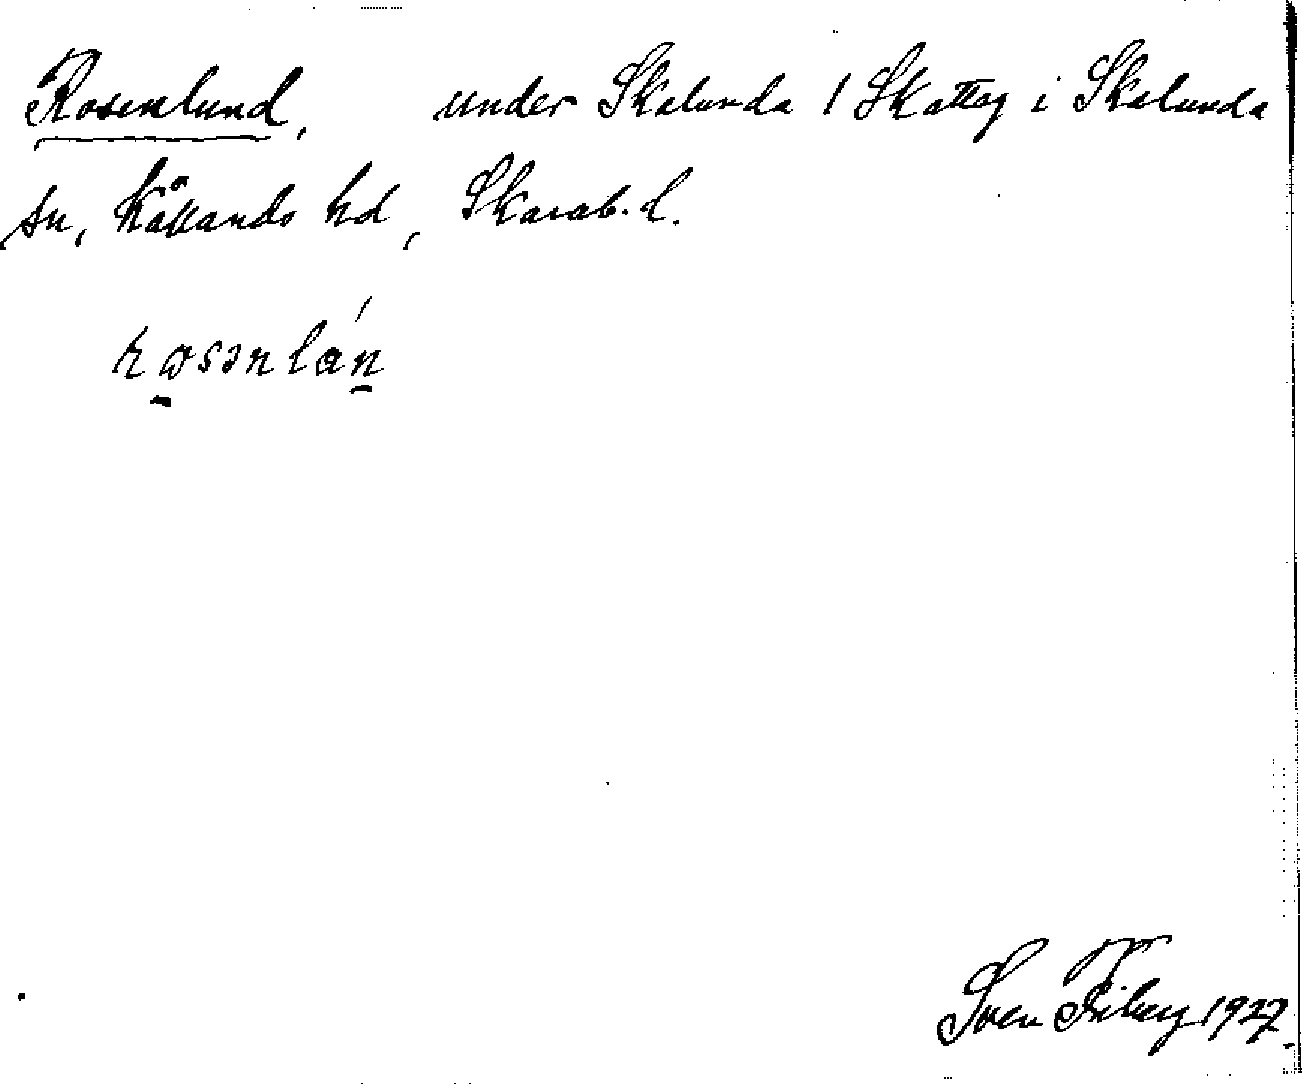 Rosenlund, under Skalunda 1 Skatteg i Skalunda
sn, Kållands hd, Skarab. l.
rosənlán
Sven Friberg 1927.